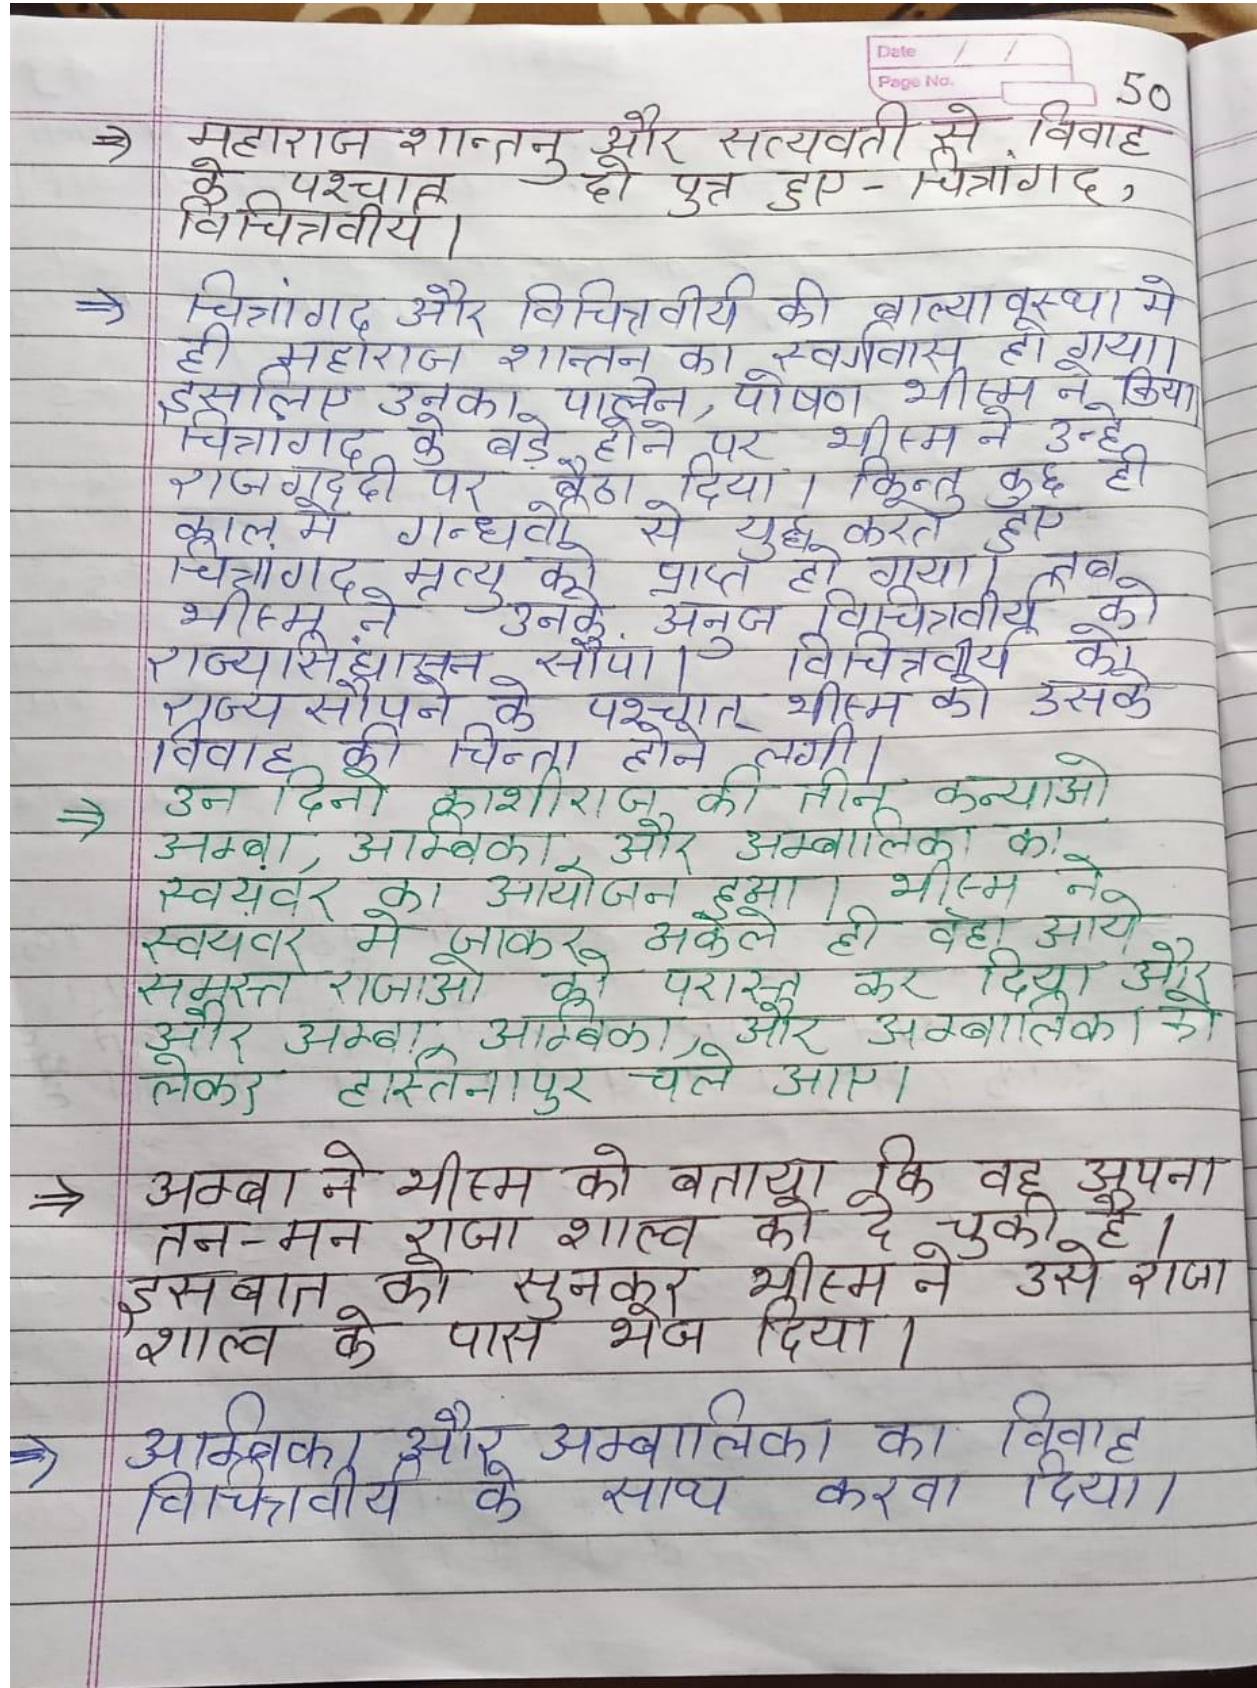 Date / /
Page No.
50
⇒ महाराज शान्तनु और सत्यवती से विवाह
के पश्चात दो पुत्र हुए - चित्रांगद,
विचित्रवीर्य।
⇒ चित्रांगद और विचित्रवीर्य की बाल्यावस्था मे
ही महाराज शान्तन का स्वर्गवास हो गया।
इसलिए उनका पालन, पोषण भीष्म ने किया
चित्रांगद के बड़े होने पर भीष्म ने उन्हे
राजगद्दी पर बैठा दिया। किन्तु कुछ ही
काल मे गन्धर्वो से युद्ध करते हुए
चित्रांगद मृत्यु को प्राप्त हो गया। तब
भीष्म ने उनके अनुज विचित्रवीर्य को
सौंपा। विचित्रवीर्य को
राज्य सौंपने के पश्चात् भीष्म को उसके
विवाह की चिन्ता होने लगी।
⇒ उन दिनो काशीराज की तीन कन्याओ
अम्बा, अम्बिका और अम्बालिका का
स्वयंवर का आयोजन हुआ। भीष्म ने
स्वयंवर मे जाकर अकेले ही वहा आये
समस्त राजाओ को परास्त कर दिया और
और अम्बा, अम्बिका, और अम्बालिका को
लेकर हस्तिनापुर चले आए।
⇒ अम्बा ने भीष्म को बताया कि वह अपना
तन-मन राजा शाल्व को दे चुकी है।
इसबात को सुनकर भीष्म ने उसे राजा
शाल्व के पास भेज दिया।
⇒ अम्बिका और अम्बालिका का विवाह
विचित्रवीर्य के साथ करवा दिया।